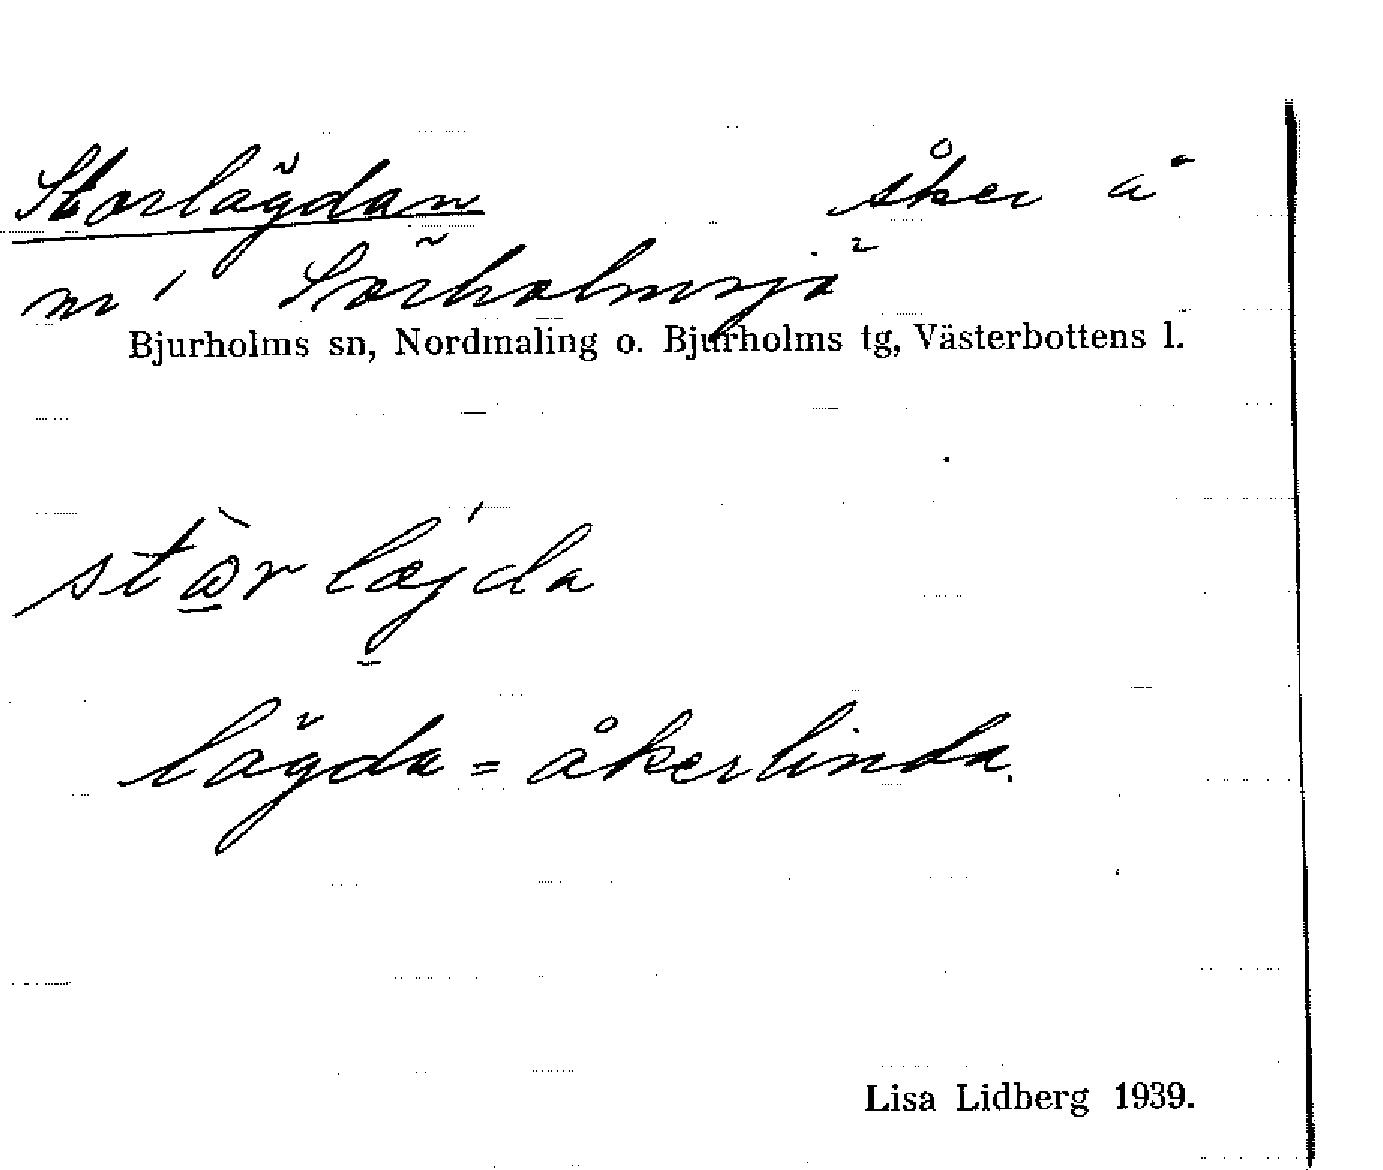 Storlägdan åker å
nr 1 Sörholmsjö
Bjurholms sn, Nordmaling o. Bjurholms tg, Västerbottens l.
stòrlæjda
lägda = åkerlinda.
Lisa Lidberg 1939.